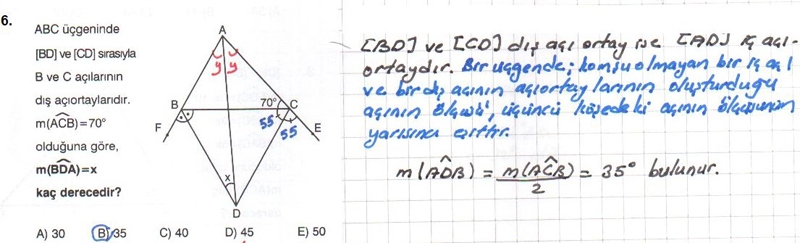 6.
ABC üçgeninde
[BD] ve [CD] sırasıyla
B ve C açılarının
dış açıortaylarıdır.
m(ACB)=70°
olduğuna göre,
m(BDA)=x
kaç derecedir?
A
y y
B
70°
C
55
55
F
E
x
D
A) 30 B) 35 C) 40 D) 45 E) 50
[BD] ve [CD] dış açı ortay ise [AD] iç açı-
ortaydır. Bir üçgende; komşu olmayan bir iç açı
ve bir dış açının açıortaylarının oluşturduğu
açının ölçüsü, üçüncü köşedeki açının ölçüsünün
yarısına eşittir.
m(ADB) = m(ACB)/2 = 35° bulunur.